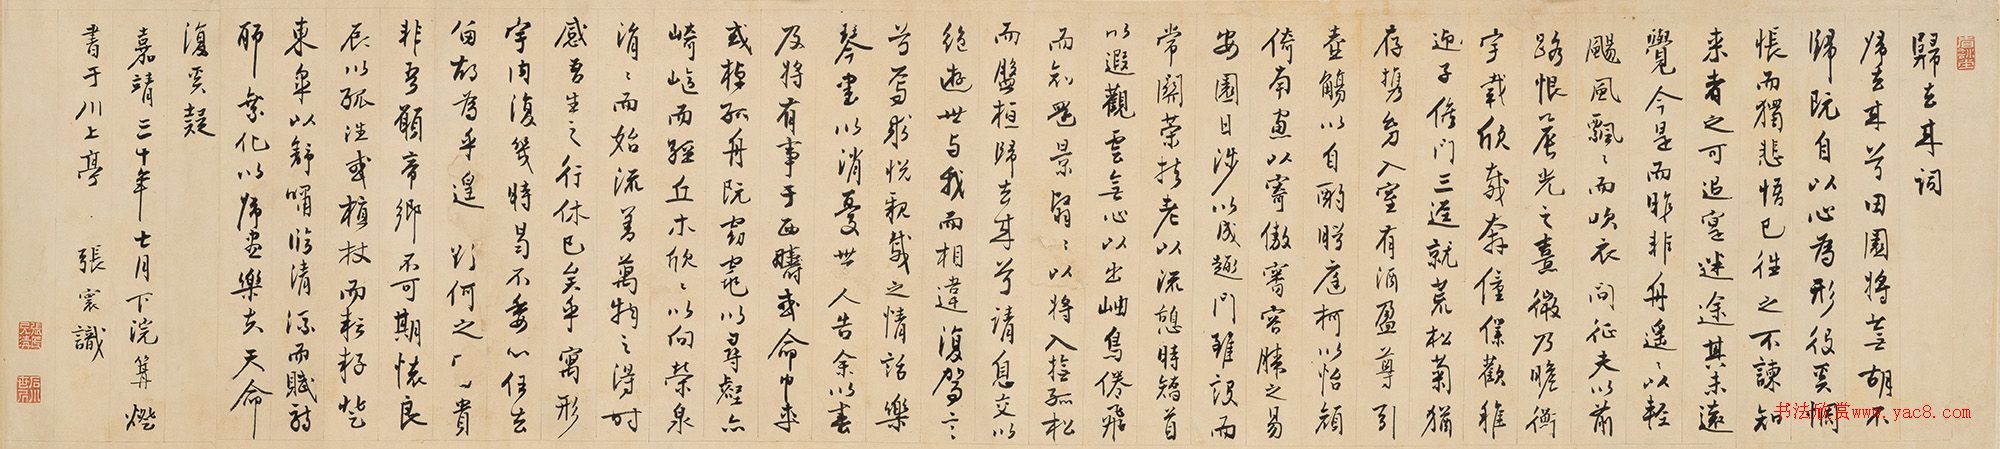 歸去来詞
歸去来兮田園將蕪胡不
歸既自以心為形役奚惆
悵而獨悲悟已往之不諫知
来者之可追寔迷途其未遠
覺今是而昨非舟遥〻以輕
颺風飄〻而吹衣問征夫以前
路恨晨光之熹微乃瞻衡
宇載欣載奔僮僕歡稚
迎子候門三逕就荒松菊猶
存携幼入室有酒盈尊引
壺觴以自酌眄庭柯以怡顔
倚南窗以寄傲審容膝之易
安園日涉以成趣門雖設而
常關策扶老以流憩時矯首
以遐觀雲無心以出岫鳥倦飛
而知還景翳〻以將入撫孤松
而盤桓歸去来兮請息交以
絶遊世与我而相違復駕言
兮焉求悦親戚之情話樂
琴書以消憂世人告余以春
及將有事于西疇或命巾車
或棹孤舟既窈窕以尋壑亦
崎嶇而經丘木欣〻以向榮泉
涓〻而始流善萬物之得时
感吾生之行休已矣乎寓形
宇内復幾時曷不委心任去
留胡為乎遑 何之 貴
非吾願帝鄉不可期懷良
辰以孤往或植杖而耘耔登
東皋以舒嘯臨清流而賦詩
聊乘化以歸盡樂夫天命
復奚疑
嘉靖三十年七月下浣篝燈
書于川上亭 張寰識
书法欣赏www.yac8.com